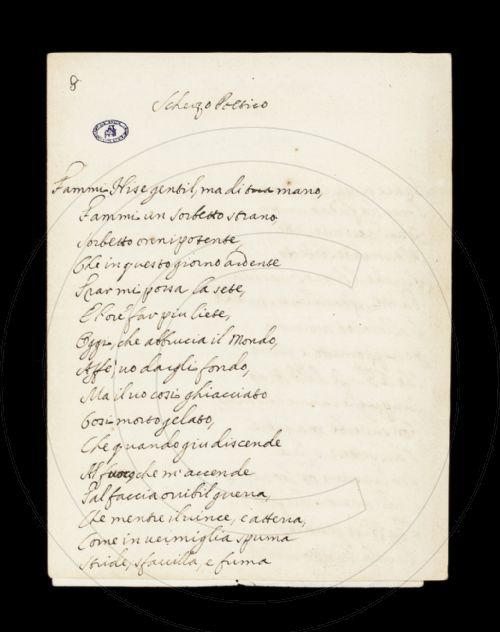 8
Scherzo Poetico
Fammi Nise gentil, ma di tua mano,
Fammi un sorbetto strano
Sorbetto onnipotente,
Che in questo giorno ardente
Trar mi possa la sete,
E l'ore far piu liete,
Oggi, che abbrucia il Mondo,
Affe, vo dargli fondo,
Ma il vo cosi ghiacciato
Cosi morto gelato,
Che quando giu discende
Al fuoco che m'accende
Tal faccia orribil guerra,
Che mentre il vince, e atterra,
Come in vermiglia spuma
Stride, sfavilla, e fuma